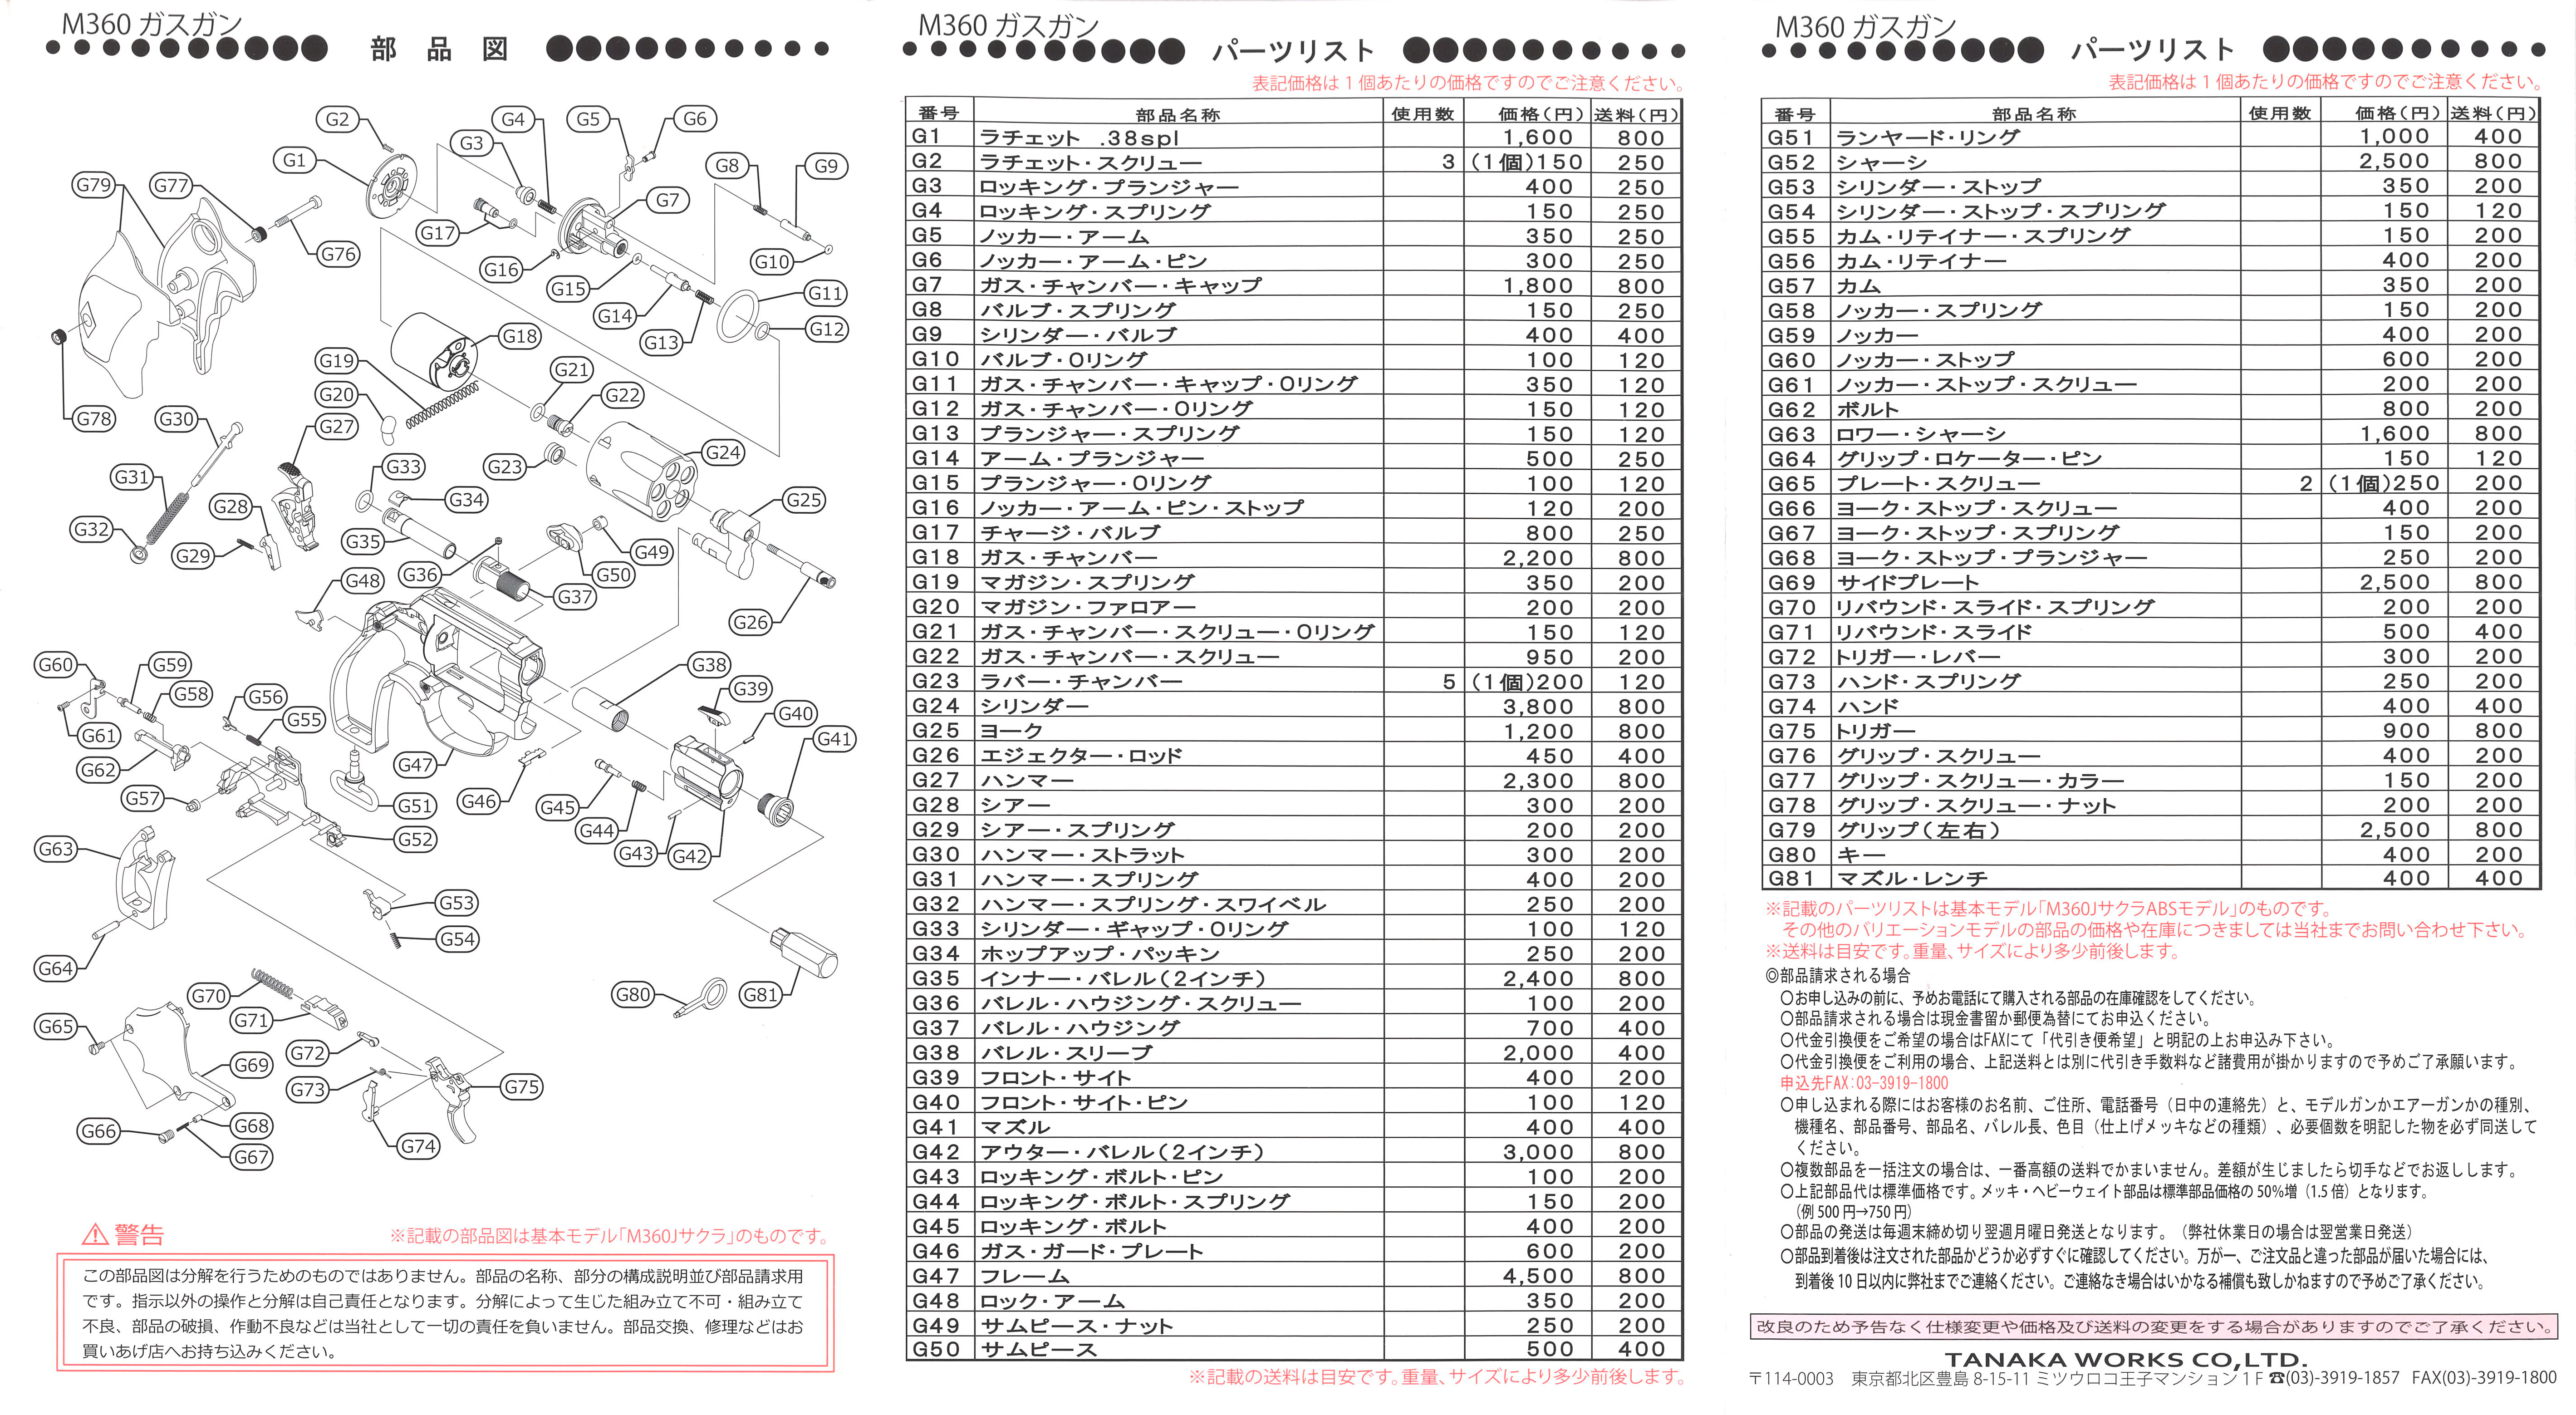 M360 ガスガン
部 品 図
G1
G2
G3
G4
G5
G6
G7
G8
G9
G10
G11
G12
G13
G14
G15
G16
G17
G18
G19
G20
G21
G22
G23
G24
G25
G26
G27
G28
G29
G30
G31
G32
G33
G34
G35
G36
G37
G38
G39
G40
G41
G42
G43
G44
G45
G46
G47
G48
G49
G50
G51
G52
G53
G54
G55
G56
G57
G58
G59
G60
G61
G62
G63
G64
G65
G66
G67
G68
G69
G70
G71
G72
G73
G74
G75
G76
G77
G78
G79
G80
G81
⚠ 警告
※記載の部品図は基本モデル「M360Jサクラ」のものです。
この部品図は分解を行うためのものではありません。部品の名称、部分の構成説明並び部品請求用
です。指示以外の操作と分解は自己責任となります。分解によって生じた組み立て不可・組み立て
不良、部品の破損、作動不良などは当社として一切の責任を負いません。部品交換、修理などはお
買いあげ店へお持ち込みください。
M360 ガスガン
パーツリスト
表記価格は1個あたりの価格ですのでご注意ください。
番号 部品名称 使用数 価格(円) 送料(円)
G1 ラチェット .38spl 1,600 800
G2 ラチェット・スクリュー 3 (1個)150 250
G3 ロッキング・プランジャー 400 250
G4 ロッキング・スプリング 150 250
G5 ノッカー・アーム 350 250
G6 ノッカー・アーム・ピン 300 250
G7 ガス・チャンバー・キャップ 1,800 800
G8 バルブ・スプリング 150 250
G9 シリンダー・バルブ 400 400
G10 バルブ・Oリング 100 120
G11 ガス・チャンバー・キャップ・Oリング 350 120
G12 ガス・チャンバー・Oリング 150 120
G13 プランジャー・スプリング 150 120
G14 アーム・プランジャー 500 250
G15 プランジャー・Oリング 100 120
G16 ノッカー・アーム・ピン・ストップ 120 200
G17 チャージ・バルブ 800 250
G18 ガス・チャンバー 2,200 800
G19 マガジン・スプリング 350 200
G20 マガジン・ファロアー 200 200
G21 ガス・チャンバー・スクリュー・Oリング 150 120
G22 ガス・チャンバー・スクリュー 950 200
G23 ラバー・チャンバー 5 (1個)200 120
G24 シリンダー 3,800 800
G25 ヨーク 1,200 800
G26 エジェクター・ロッド 450 400
G27 ハンマー 2,300 800
G28 シアー 300 200
G29 シアー・スプリング 200 200
G30 ハンマー・ストラット 300 200
G31 ハンマー・スプリング 400 200
G32 ハンマー・スプリング・スワイベル 250 200
G33 シリンダー・ギャップ・Oリング 100 120
G34 ホップアップ・パッキン 250 200
G35 インナー・バレル(2インチ) 2,400 800
G36 バレル・ハウジング・スクリュー 100 200
G37 バレル・ハウジング 700 400
G38 バレル・スリーブ 2,000 400
G39 フロント・サイト 400 200
G40 フロント・サイト・ピン 100 120
G41 マズル 400 400
G42 アウター・バレル(2インチ) 3,000 800
G43 ロッキング・ボルト・ピン 100 200
G44 ロッキング・ボルト・スプリング 150 200
G45 ロッキング・ボルト 400 200
G46 ガス・ガード・プレート 600 200
G47 フレーム 4,500 800
G48 ロック・アーム 350 200
G49 サムピース・ナット 250 200
G50 サムピース 500 400
※記載の送料は目安です。重量、サイズにより多少前後します。
M360 ガスガン
パーツリスト
表記価格は1個あたりの価格ですのでご注意ください。
番号 部品名称 使用数 価格(円) 送料(円)
G51 ランヤード・リング 1,000 400
G52 シャーシ 2,500 800
G53 シリンダー・ストップ 350 200
G54 シリンダー・ストップ・スプリング 150 120
G55 カム・リテイナー・スプリング 150 200
G56 カム・リテイナー 400 200
G57 カム 350 200
G58 ノッカー・スプリング 150 200
G59 ノッカー 400 200
G60 ノッカー・ストップ 600 200
G61 ノッカー・ストップ・スクリュー 200 200
G62 ボルト 800 200
G63 ロワー・シャーシ 1,600 800
G64 グリップ・ロケーター・ピン 150 120
G65 プレート・スクリュー 2 (1個)250 200
G66 ヨーク・ストップ・スクリュー 400 200
G67 ヨーク・ストップ・スプリング 150 200
G68 ヨーク・ストップ・プランジャー 250 200
G69 サイドプレート 2,500 800
G70 リバウンド・スライド・スプリング 200 200
G71 リバウンド・スライド 500 400
G72 トリガー・レバー 300 200
G73 ハンド・スプリング 250 200
G74 ハンド 400 400
G75 トリガー 900 800
G76 グリップ・スクリュー 400 200
G77 グリップ・スクリュー・カラー 150 200
G78 グリップ・スクリュー・ナット 200 200
G79 グリップ(左右) 2,500 800
G80 キー 400 200
G81 マズル・レンチ 400 400
※記載のパーツリストは基本モデル「M360JサクラABSモデル」のものです。
その他のバリエーションモデルの部品の価格や在庫につきましては当社までお問い合わせ下さい。
※送料は目安です。重量、サイズにより多少前後します。
◎部品請求される場合
○お申し込みの前に、予めお電話にて購入される部品の在庫確認をしてください。
○部品請求される場合は現金書留か郵便為替にてお申込ください。
○代金引換便をご希望の場合はFAXにて「代引き便希望」と明記の上お申込み下さい。
○代金引換便をご利用の場合、上記送料とは別に代引き手数料など諸費用が掛かりますので予めご了承願います。
申込先FAX:03-3919-1800
○申し込まれる際にはお客様のお名前、ご住所、電話番号（日中の連絡先）と、モデルガンかエアーガンかの種別、
機種名、部品番号、部品名、バレル長、色目（仕上げメッキなどの種類）、必要個数を明記した物を必ず同送して
ください。
○複数部品を一括注文の場合は、一番高額の送料でかまいません。差額が生じましたら切手などでお返しします。
○上記部品代は標準価格です。メッキ・ヘビーウェイト部品は標準部品価格の50%増（1.5倍）となります。
（例 500円→750円）
○部品の発送は毎週末締め切り翌週月曜日発送となります。（弊社休業日の場合は翌営業日発送）
○部品到着後は注文された部品かどうか必ずすぐに確認してください。万が一、ご注文品と違った部品が届いた場合には、
到着後10日以内に弊社までご連絡ください。ご連絡なき場合はいかなる補償も致しかねますので予めご了承ください。
改良のため予告なく仕様変更や価格及び送料の変更をする場合がありますのでご了承ください。
TANAKA WORKS CO,LTD.
〒114-0003 東京都北区豊島 8-15-11 ミツウロコ王子マンション1F ☎(03)-3919-1857 FAX(03)-3919-1800